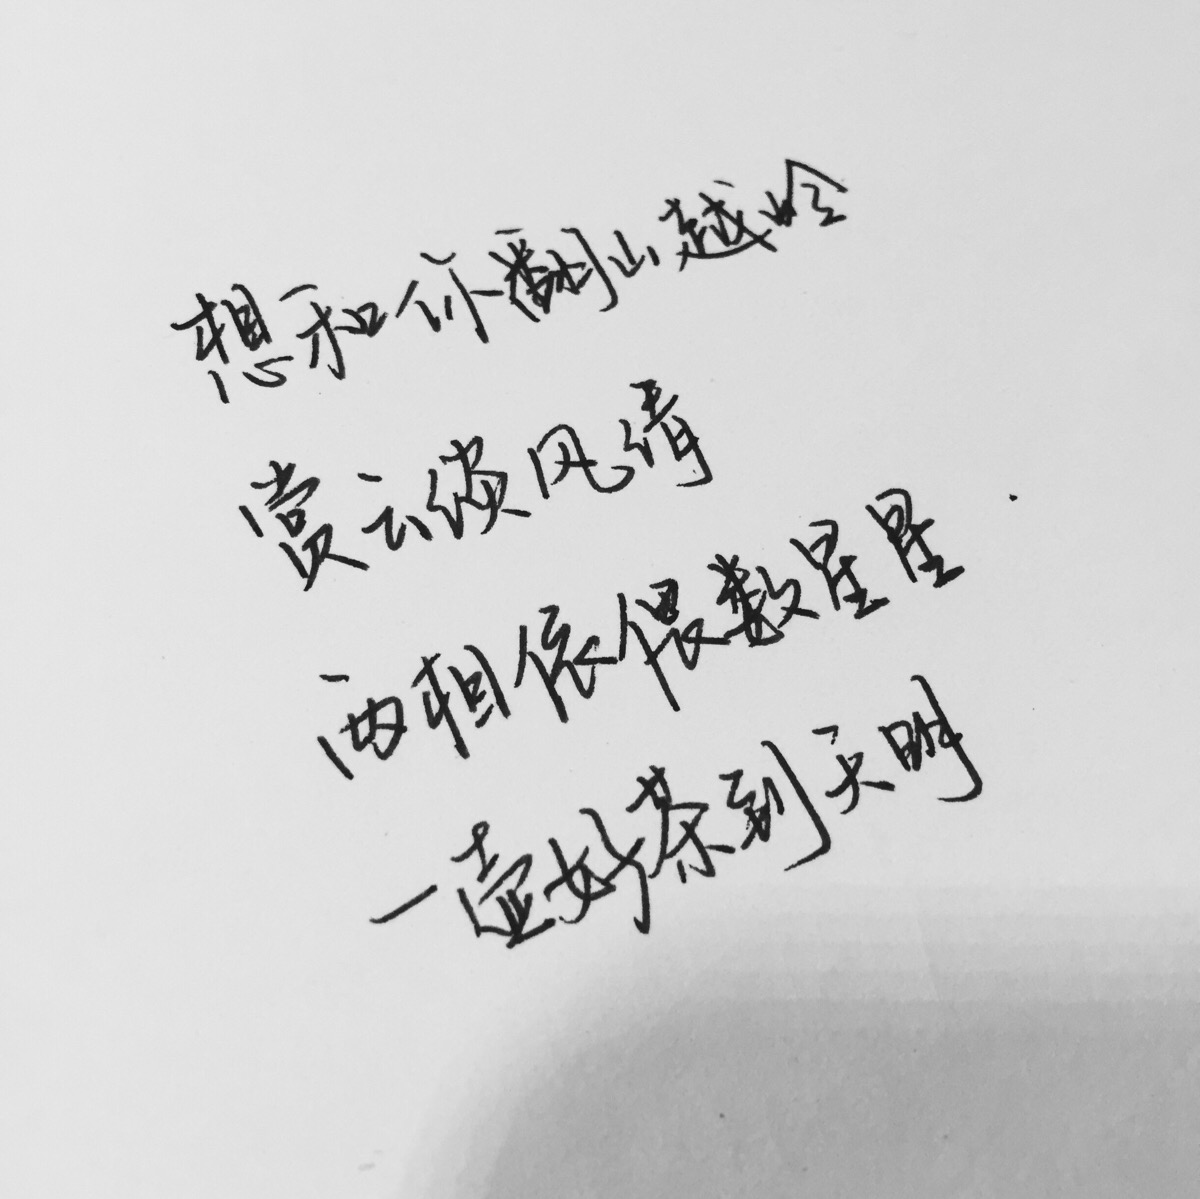 想和你翻山越岭
赏云颂风情
两相依偎数星星
一壶好茶到天明